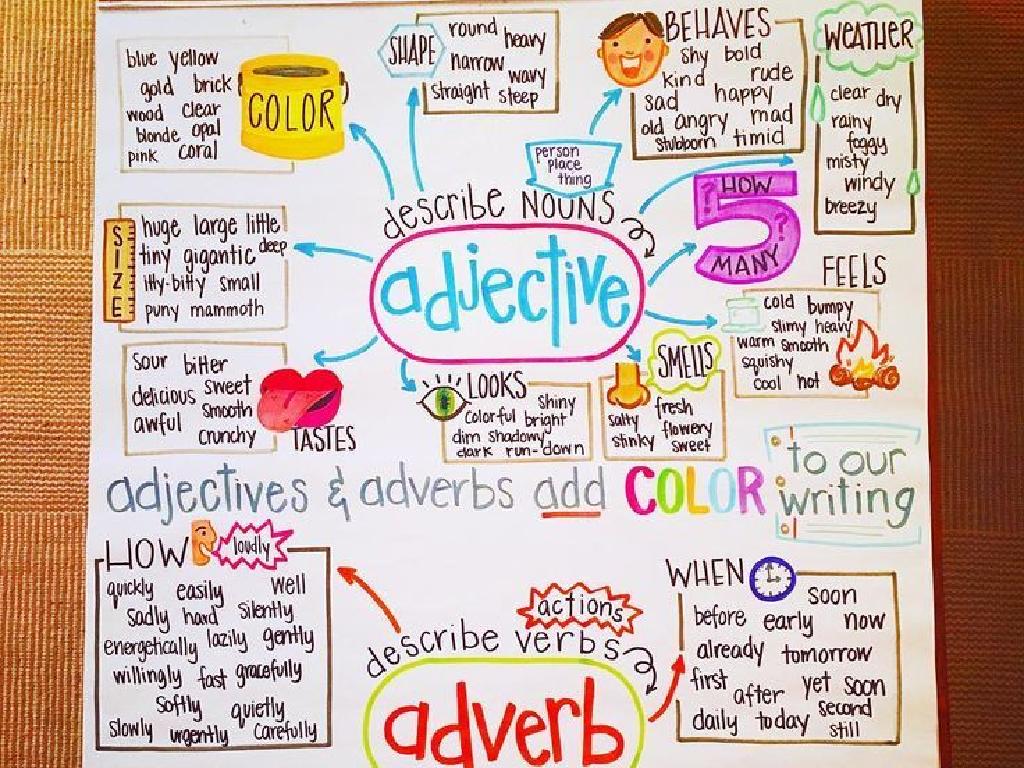 blue yellow
gold brick
wood clear
blonde opal
pink coral
COLOR
SHAPE
round heavy
narrow
wavy
straight steep
BEHAVES
shy bold
kind rude
sad happy
old angry mad
stubborn timid
WEATHER
clear dry
rainy
foggy
misty
windy
breezy
person
place
thing
describe NOUNS
adjective
? HOW
5 ?
MANY
SIZE
huge large little
tiny gigantic deep
itty-bitty small
puny mammoth
FEELS
cold bumpy
slimy heavy
warm smooth
squishy
cool hot
sour bitter
delicious sweet
smooth
awful crunchy
TASTES
LOOKS
colorful shiny
bright
dim shadowy
dark run-down
SMELLS
salty fresh
flowery
stinky sweet
adjectives & adverbs add COLOR to our
writing
HOW loudly
quickly easily well
sadly hard silently
energetically lazily gently
willingly fast gracefully
softly quietly
slowly urgently carefully
actions
describe verbs
adverb
WHEN
soon
before early now
already tomorrow
first after yet soon
second
daily today still